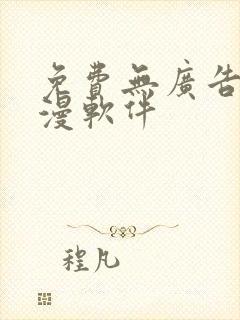 免費無廣告
漫軟件
程凡